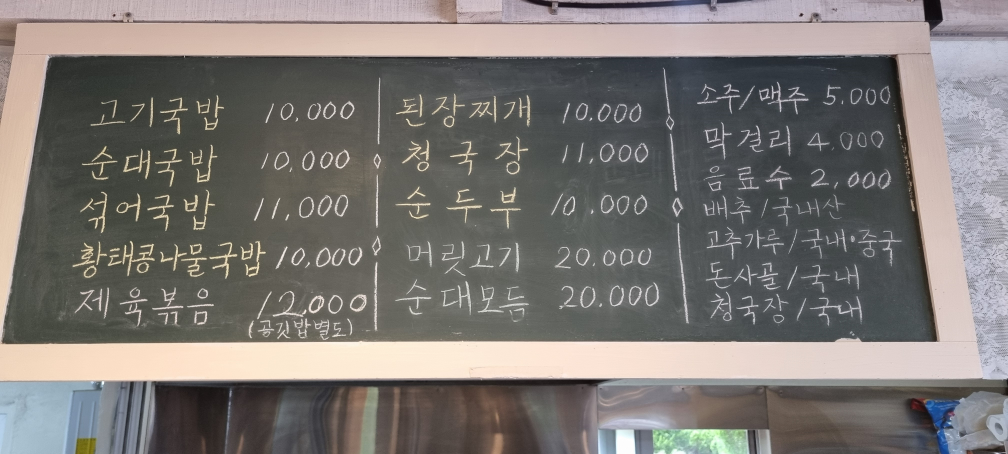 고기국밥 10,000
순대국밥 10,000
섞어국밥 11,000
황태콩나물국밥 10,000
제육볶음 12,000
(공깃밥별도)
된장찌개 10,000
청국장 11,000
순두부 10,000
머릿고기 20,000
순대모듬 20,000
소주/맥주 5,000
막걸리 4,000
음료수 2,000
배추/국내산
고추가루/국내·중국
돈사골/국내
청국장/국내